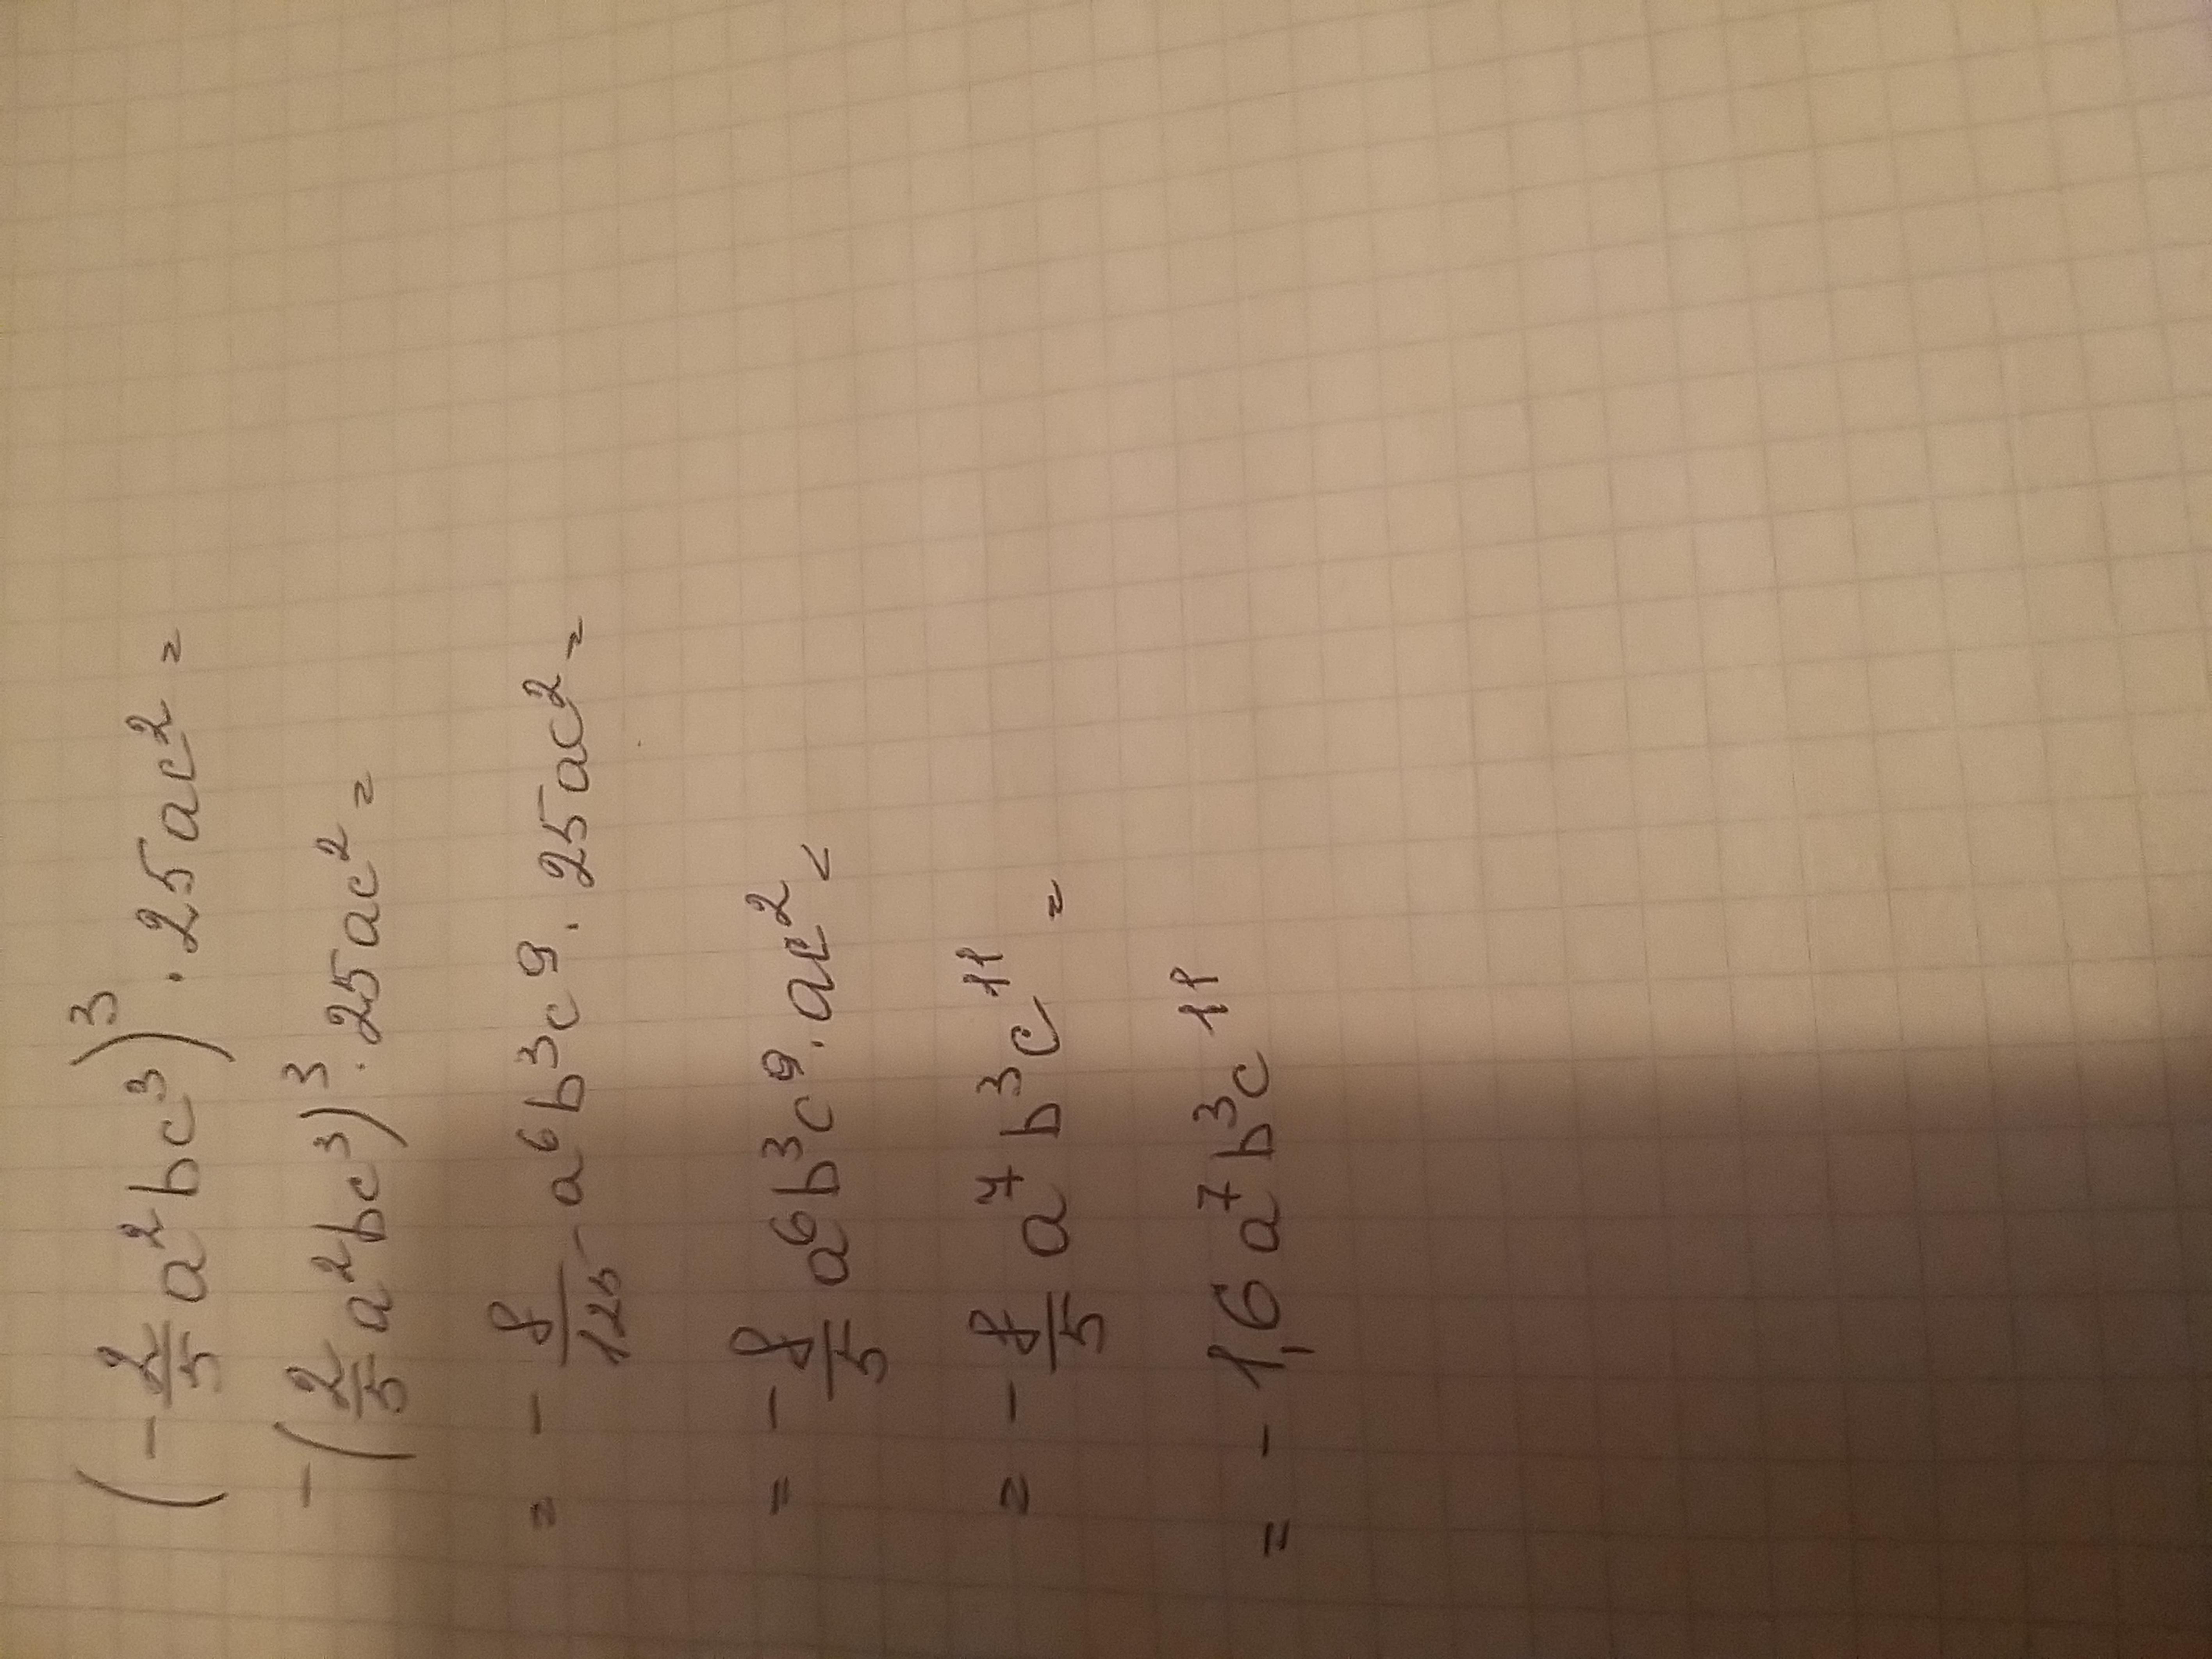 (-2/5 a²bc³)³ · 25ac² =
-(2/5 a²bc³)³ · 25ac² =
= - 8/125 - a⁶b³c⁹ · 25ac² =
= - 8/5 a⁶b³c⁹ · ac² =
= - 8/5 a⁷b³c¹¹ =
= - 1,6a⁷b³c¹¹